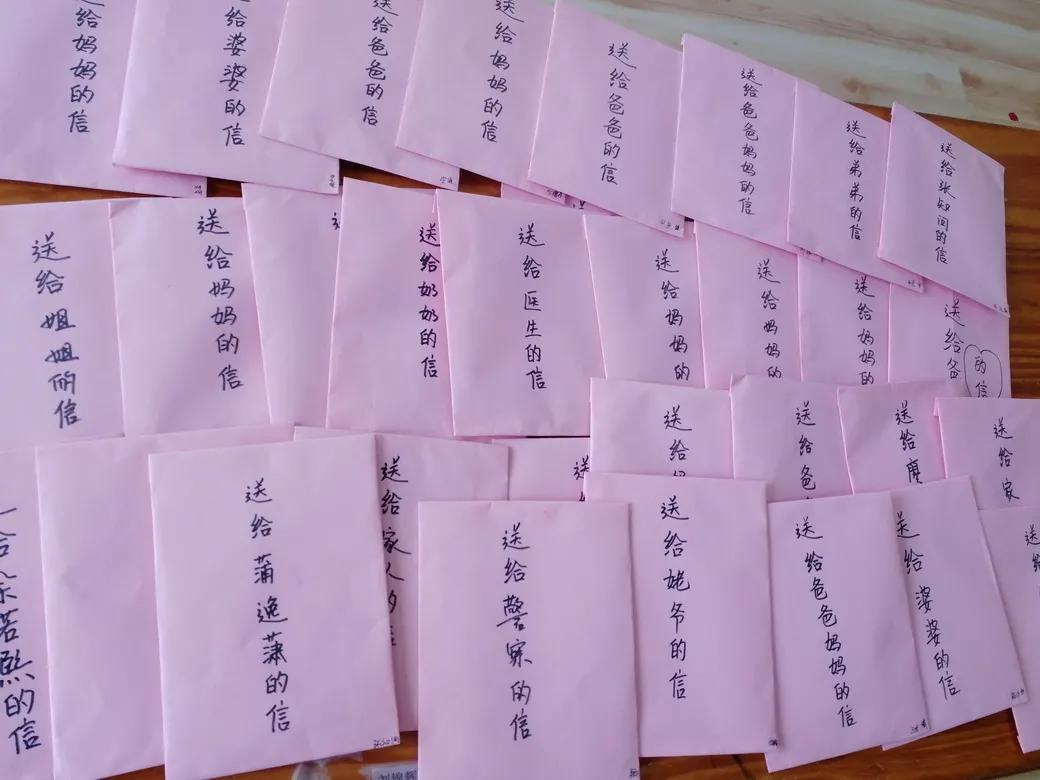 送给妈妈的信
给婆婆的信
送给爸爸的信
送给妈妈的信
送给爸爸的信
送给爸爸妈妈的信
送给弟弟的信
送给张知问的信
送给姐姐的信
送给妈妈的信
送给奶奶的信
送给医生的信
送给妈妈的
送给妈妈的
送给妈妈的信
送给爸
的信
送给
送给爸
送给
送给家
若熙的信
送给蒲逸萧的信
送给家人的
送
送给警察的信
送给姥爷的信
送给爸爸妈妈的信
送给婆婆的信
送给